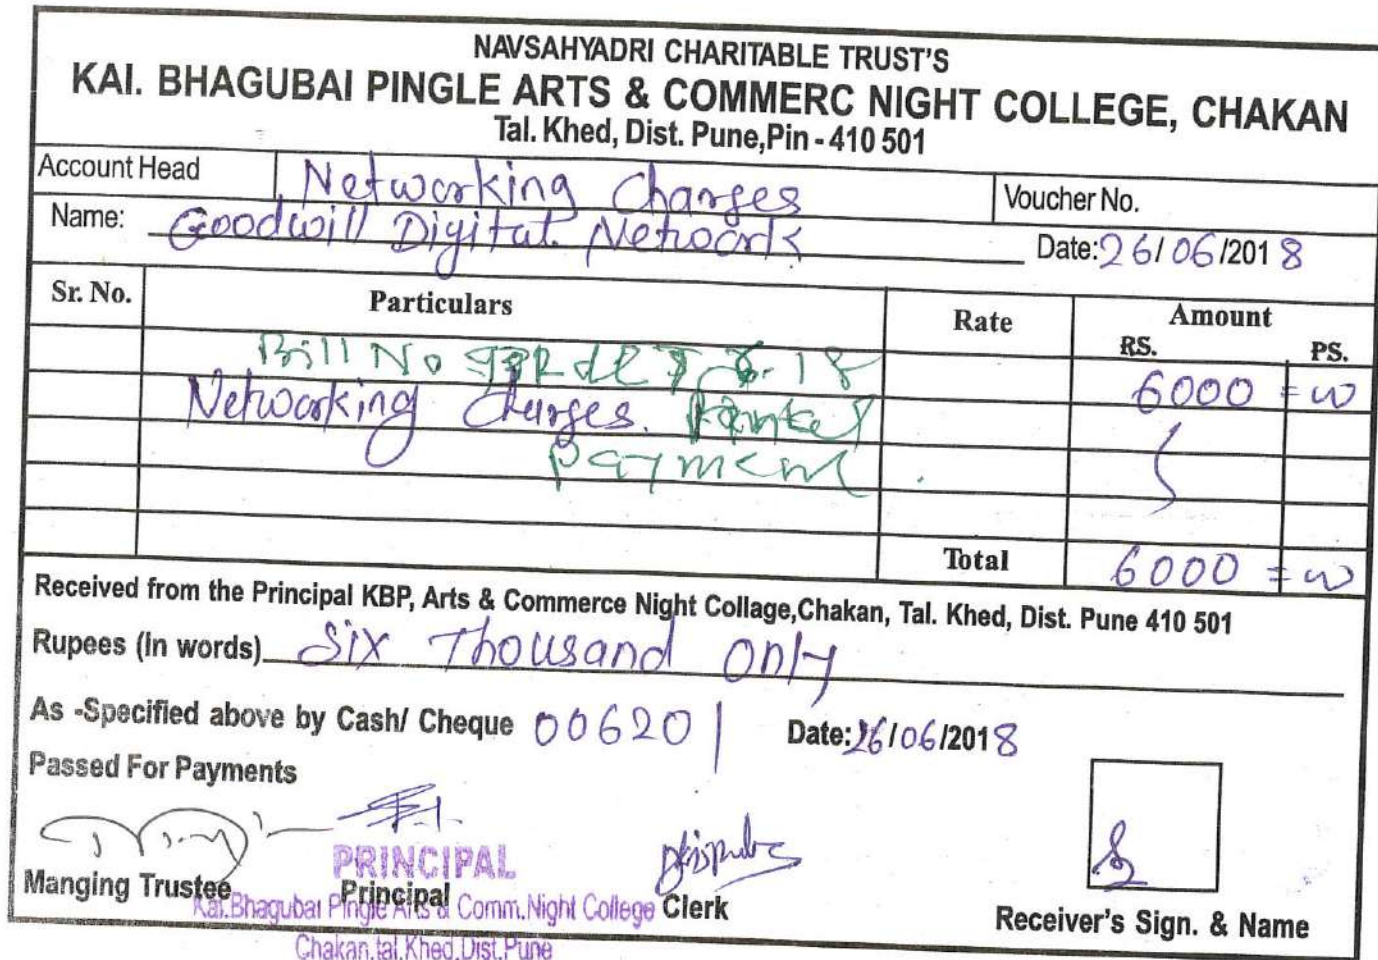 NAVSAHYADRI CHARITABLE TRUST'S
KAI. BHAGUBAI PINGLE ARTS & COMMERC NIGHT COLLEGE, CHAKAN
Tal. Khed, Dist. Pune,Pin - 410 501
Account Head Networking Charges Voucher No.
Name: Goodwill Digital Network Date: 26/06/2018
Sr. No. Particulars Rate Amount
RS. PS.
Bill No 6000 =00
Networking Charges.
Payment
Total 6000 =00
Received from the Principal KBP, Arts & Commerce Night Collage,Chakan, Tal. Khed, Dist. Pune 410 501
Rupees (In words) Six Thousand Only
As -Specified above by Cash/ Cheque 006201 Date: 26/06/2018
Passed For Payments
PRINCIPAL
Manging Trustee Principal Clerk Receiver's Sign. & Name
Kai.Bhagubai Pingle Arts & Comm.Night College
Chakan,tal.Khed,Dist.Pune